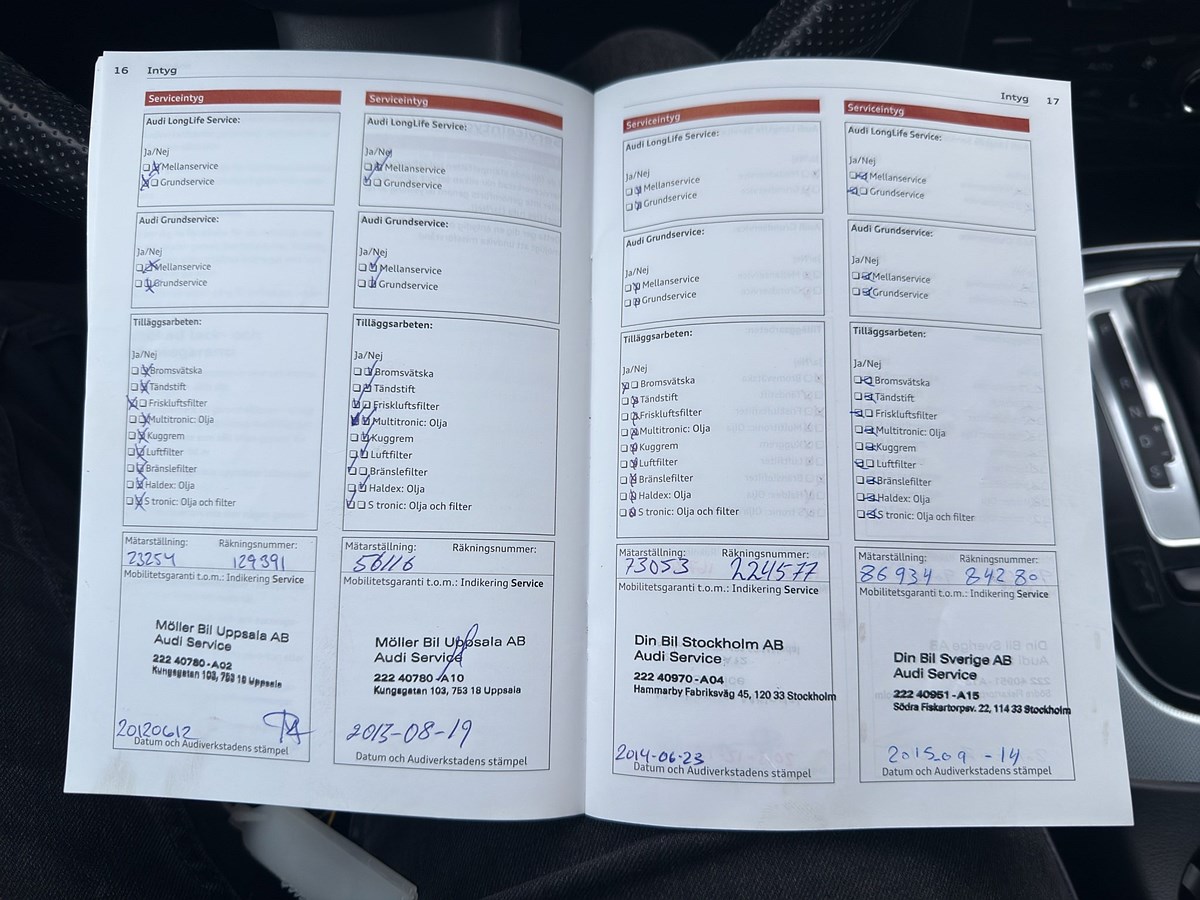 16 Intyg
Serviceintyg
Audi LongLife Service:
Ja/Nej
Mellanservice
Grundservice
Audi Grundservice:
Ja/Nej
Mellanservice
Grundservice
Tilläggsarbeten:
Ja/Nej
Bromsvätska
Tändstift
Friskluftsfilter
Multitronic: Olja
Kuggrem
Luftfilter
Bränslefilter
Haldex: Olja
S tronic: Olja och filter
Mätarställning: Räkningsnummer:
23254 129391
Mobilitetsgaranti t.o.m.: Indikering Service
Möller Bil Uppsala AB
Audi Service
222 40780-A02
Kungsgatan 103, 753 18 Uppsala
20120612
Datum och Audiverkstadens stämpel
Serviceintyg
Audi LongLife Service:
Ja/Nej
Mellanservice
Grundservice
Audi Grundservice:
Ja/Nej
Mellanservice
Grundservice
Tilläggsarbeten:
Ja/Nej
Bromsvätska
Tändstift
Friskluftsfilter
Multitronic: Olja
Kuggrem
Luftfilter
Bränslefilter
Haldex: Olja
S tronic: Olja och filter
Mätarställning: Räkningsnummer:
56116
Mobilitetsgaranti t.o.m.: Indikering Service
Möller Bil Uppsala AB
Audi Service
222 40780-A10
Kungsgatan 103, 753 18 Uppsala
2013-08-19
Datum och Audiverkstadens stämpel
Intyg 17
Serviceintyg
Audi LongLife Service:
Ja/Nej
Mellanservice
Grundservice
Audi Grundservice:
Ja/Nej
Mellanservice
Grundservice
Tilläggsarbeten:
Ja/Nej
Bromsvätska
Tändstift
Friskluftsfilter
Multitronic: Olja
Kuggrem
Luftfilter
Bränslefilter
Haldex: Olja
S tronic: Olja och filter
Mätarställning: Räkningsnummer:
73053 224577
Mobilitetsgaranti t.o.m.: Indikering Service
Din Bil Stockholm AB
Audi Service
222 40970-A04
Hammarby Fabriksväg 45, 120 33 Stockholm
2014-06-23
Datum och Audiverkstadens stämpel
Serviceintyg
Audi LongLife Service:
Ja/Nej
Mellanservice
Grundservice
Audi Grundservice:
Ja/Nej
Mellanservice
Grundservice
Tilläggsarbeten:
Ja/Nej
Bromsvätska
Tändstift
Friskluftsfilter
Multitronic: Olja
Kuggrem
Luftfilter
Bränslefilter
Haldex: Olja
S tronic: Olja och filter
Mätarställning: Räkningsnummer:
86934 84280
Mobilitetsgaranti t.o.m.: Indikering Service
Din Bil Sverige AB
Audi Service
222 40951-A15
Södra Fiskartorpsv. 22, 114 33 Stockholm
2015.09 -14
Datum och Audiverkstadens stämpel
R
N
D
S